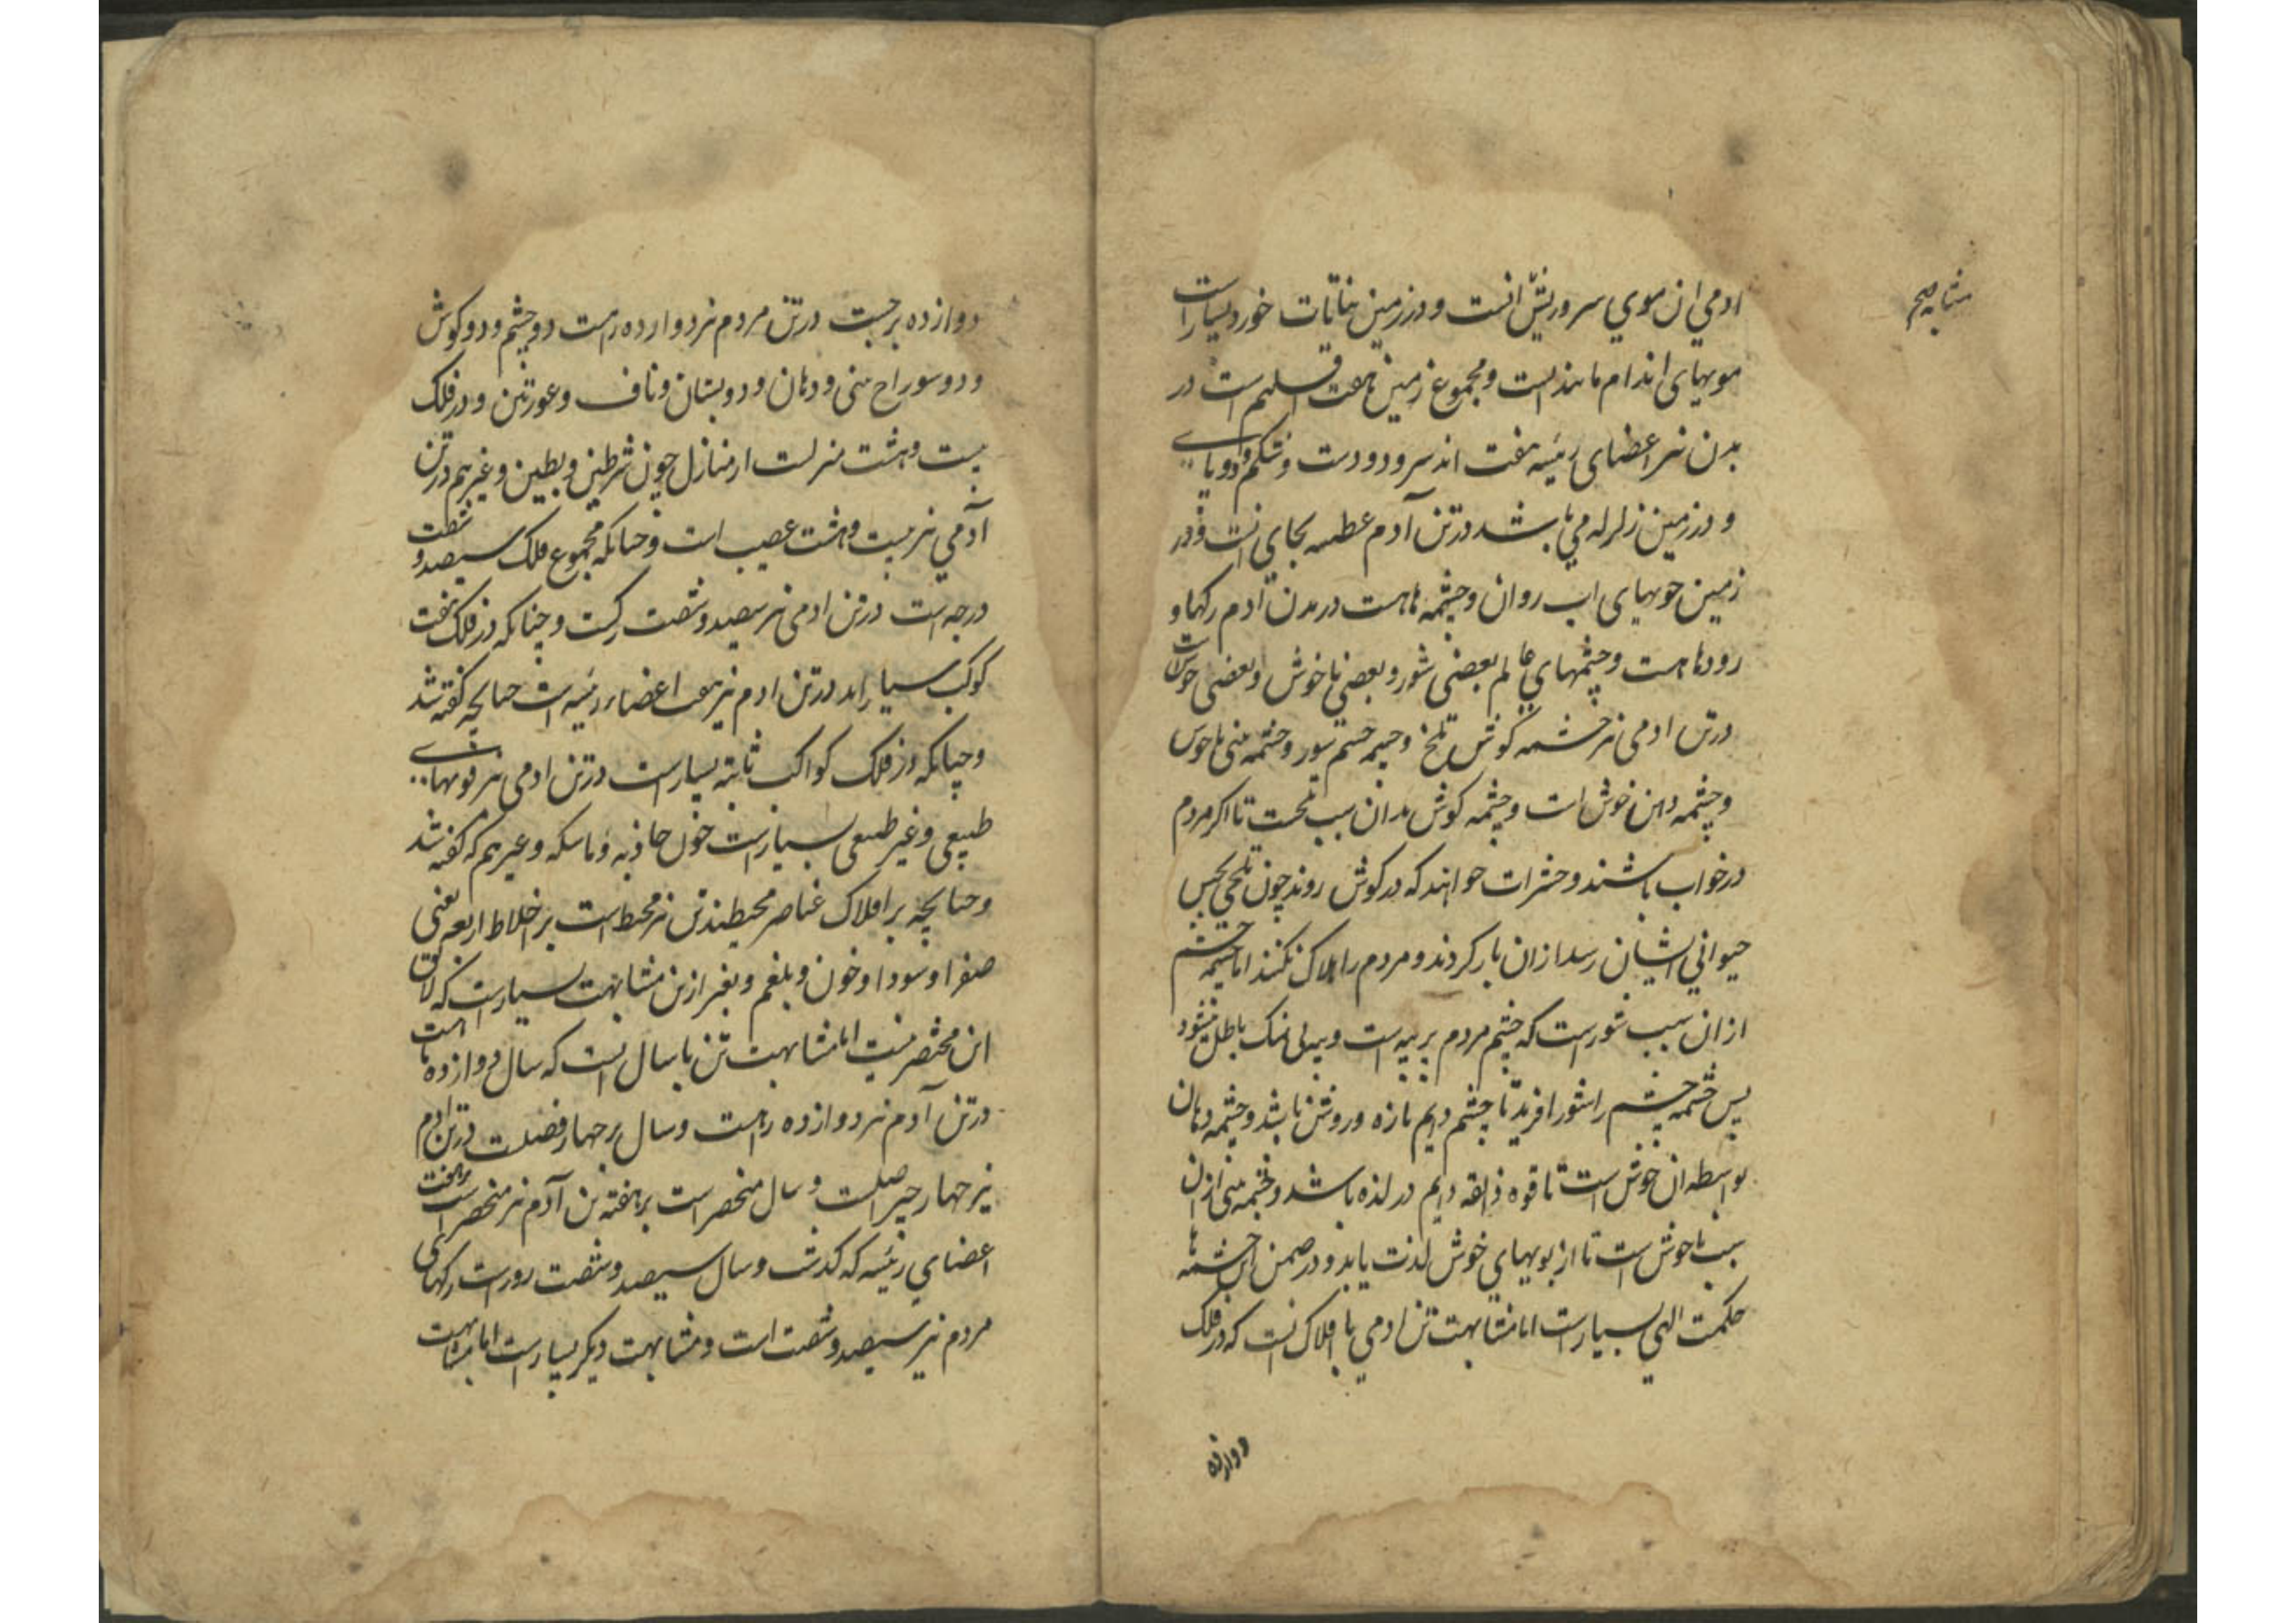 ادمي ان موي سر و ریش انست و در زمین نباتات خورد بسیارست
مویهای اندام مانند است و مجموع زمین هفت اقلیم است در
بدن نیز اعضای رئیسه هفت اند سر و دو دست و شکم و دو پای
و در زمین زلزله مي باشد در تن آدم عطسه بجای انست و در
زمین جویهای اب روان و چشمه ها هست در بدن آدم رکها و
رودها هست و چشمهاي عالم بعضی شور و بعضی ناخوش و بعضی خوش است
در تن ادمی نیز چشمه کوش تلخ و چشمه چشم شور و چشمه بینی ناخوش
و چشمه دهن خوش است و چشمه کوش بدان سبب تلخست تا اکر مردم
در خواب باشند و حشرات خواهند که در کوش روند چون تلخی بحس
حیواني ایشان رسد از ان باز کردند و مردم را هلاک نکنند اما چشمه چشم
از ان سبب شورست که چشم مردم بر پیه است و پیه بی نمک باطل میشود
پس چشمه چشم را شور افرید تا چشم دایم تازه و روشن باشد و چشمه دهان
بواسطه ان خوش است تا قوه ذایقه دایم در لذه باشد و چشمه بینی از ان
سبب ناخوش است تا از بویهاي خوش لذت یابد و در ضمن این چشمه ها
حکمت الهي بسیارست اما مشابهت تن ادمي با افلاک انست که در فلک
دوازده
دوازده برجست در تن مردم نیز دوازده رهست دو چشم و دو کوش
و دو سوراخ بینی و دهان و دو پستان و ناف و عورتین و در فلک
بیست و هشت منزلست از منازل چون شرطین و بطین و غیرهم در تن
آدمي نیز بیست و هشت عصب است و چنانکه مجموع فلک سیصد و شصت
درجه است در تن ادمی نیز سیصد و شصت رکست و چنانکه در فلک هفت
کوکب سیاراند در تن ادم نیز هفت اعضاء رئیسه است چنانچه کفته شد
و چنانکه در فلک کواکب ثابته بسیارست در تن ادمی نیز قوتهای
طبیعی و غیر طبیعی بسیارست چون جاذبه و ماسکه و غیرهم که کفته شد
و چنانچه بر افلاک عناصر محیطند تن نیز محیط است بر اخلاط اربعه یعنی
صفرا و سودا و خون و بلغم و بغیر ازین مشابهت بسیارست که لایق
این مختصر نیست اما مشابهت تن با سال انست که سال دوازده ماهست
در تن آدم نیز دوازده رهست و سال بر چهار فصلست در تن ادم
نیز چهار چیز اصلست و سال منحصر است بر هفته تن آدم نیز منحصر است بر هفت
اعضاي رئیسه که کذشت و سال سیصد و شصت روزست رکهای
مردم نیز سیصد و شصت است و مشابهت دیکر بسیارست اما مشابهت